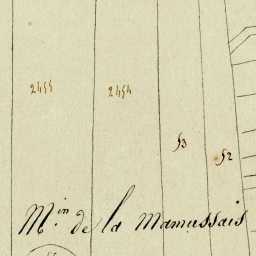 2455 2454
53
52
M.in de la Mamussais